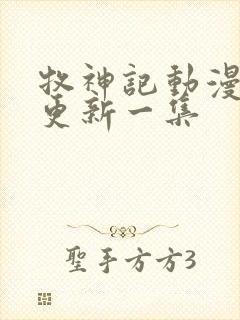 牧神記動漫
更新一集
聖手方方3